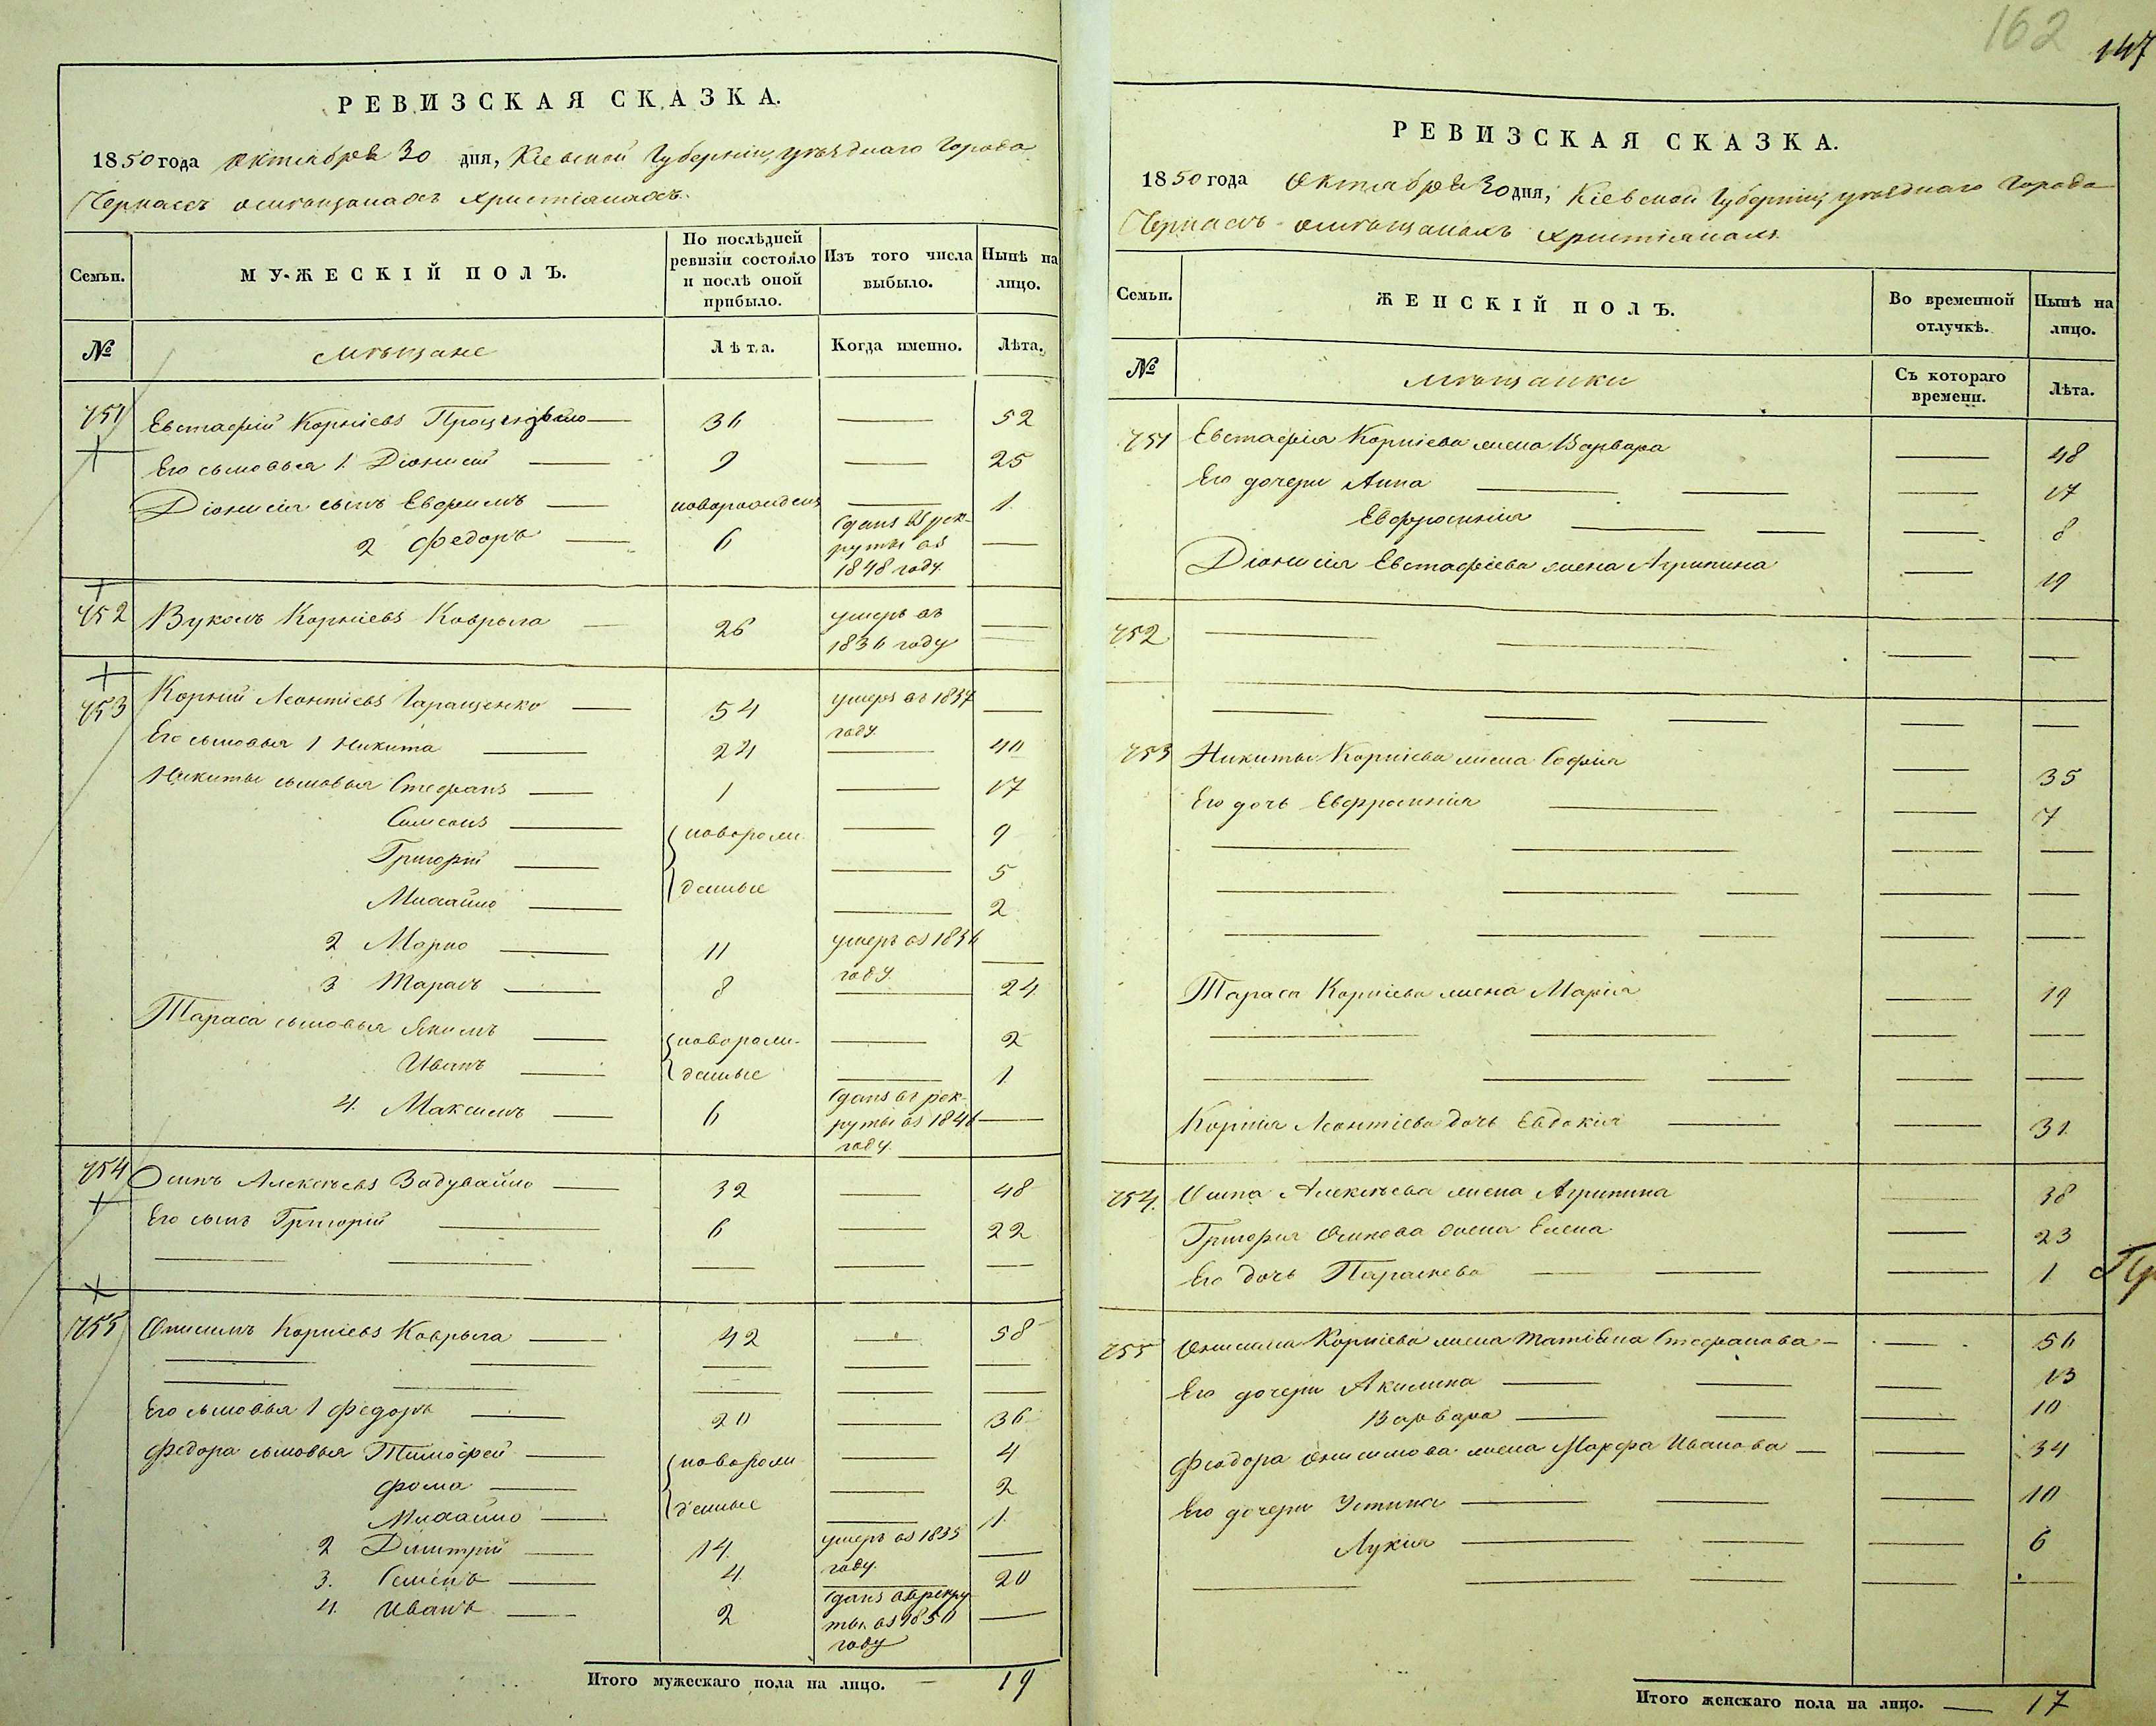 162
147
РЕВИЗСКАЯ СКАЗКА.
1850 года октября 30 дня, Кіевской Губерніи, уѣзднаго Города
Черкасъ о мѣщанахъ христіанахъ.
Семьи. МУЖЕСКІЙ ПОЛЪ. По послѣдней ревизіи состояло и послѣ оной прибыло. Изъ того числа выбыло. Нынѣ на лицо.
№ мѣщане Лѣта. Когда именно. Лѣта.
751 Евстафій Корніевъ — 36 — 52
Его сыновья 1. Діонисій — 9 — 25
Діонисія сынъ Евфимъ — новорожденъ — 1
2 Федоръ — 6 сданъ въ рекруты въ 1848 году —
752 Вуколъ Корніевъ Коврыга — 26 умеръ въ 1836 году —
753 Корній Леонтіевъ Геращенко — 54 умеръ въ 1837 году —
Его сыновья 1 Никита — 24 — 40
Никиты сыновья Стефанъ — 1 — 17
Симеонъ — новорож- — 9
Григорій — денные — 5
Михайло — — 2
2 Марко — 11 умеръ въ 1836 году —
3 Тарасъ — 8 — 24
Тараса сыновья Якимъ — новорож- — 2
Иванъ — денные — 1
4. Максимъ — 6 сданъ въ рекруты въ 1846 году —
754 Осипъ Алексѣевъ Задувайло — 32 — 48
Его сынъ Григорій — 6 — 22
755 Онисимъ Корніевъ Коврыга — 42 — 58
Его сыновья 1 Федоръ — 20 — 36
Федора сыновья Тимофей — новорож- — 4
Фома — денные — 2
Михайло — — 1
2 Димитрій — 14 умеръ въ 1835 году —
3. Семенъ — 4 — 20
4. Иванъ — 2 сданъ въ рекруты въ 1850 году —
Итого мужескаго пола на лицо. — 19
РЕВИЗСКАЯ СКАЗКА.
1850 года Октября 30 дня, Кіевской Губерніи, уѣзднаго Города
Черкасъ о мѣщанахъ христіанахъ
Семьи. ЖЕНСКІЙ ПОЛЪ. Во временной отлучкѣ. Нынѣ на лицо.
№ мѣщанки Съ котораго времени. Лѣта.
751 Евстафія Корніева жена Варвара — 48
Его дочери Анна — 17
Евфросинія — 8
Діонисія Евстафіева жена Агрипина — 19
752 — — —
753 Никиты Корніева жена Софія — 35
Его дочь Евфросинія — 7
Тараса Корніева жена Марія — 19
Корнія Леонтіева дочь Евдокія — 31
754. Осипа Алексѣева жена Агрипина — 38
Григорія Осипова жена Елена — 23
Его дочь Параскева — 1
755 Онисима Корніева жена Татіяна Стефанова — 56
Его дочери Акилина — 13
Варвара — 10
Феодора Онисимова жена Марфа Иванова — 34
Его дочери Устина — 10
Лукія — 6
Итого женскаго пола на лицо. — 17